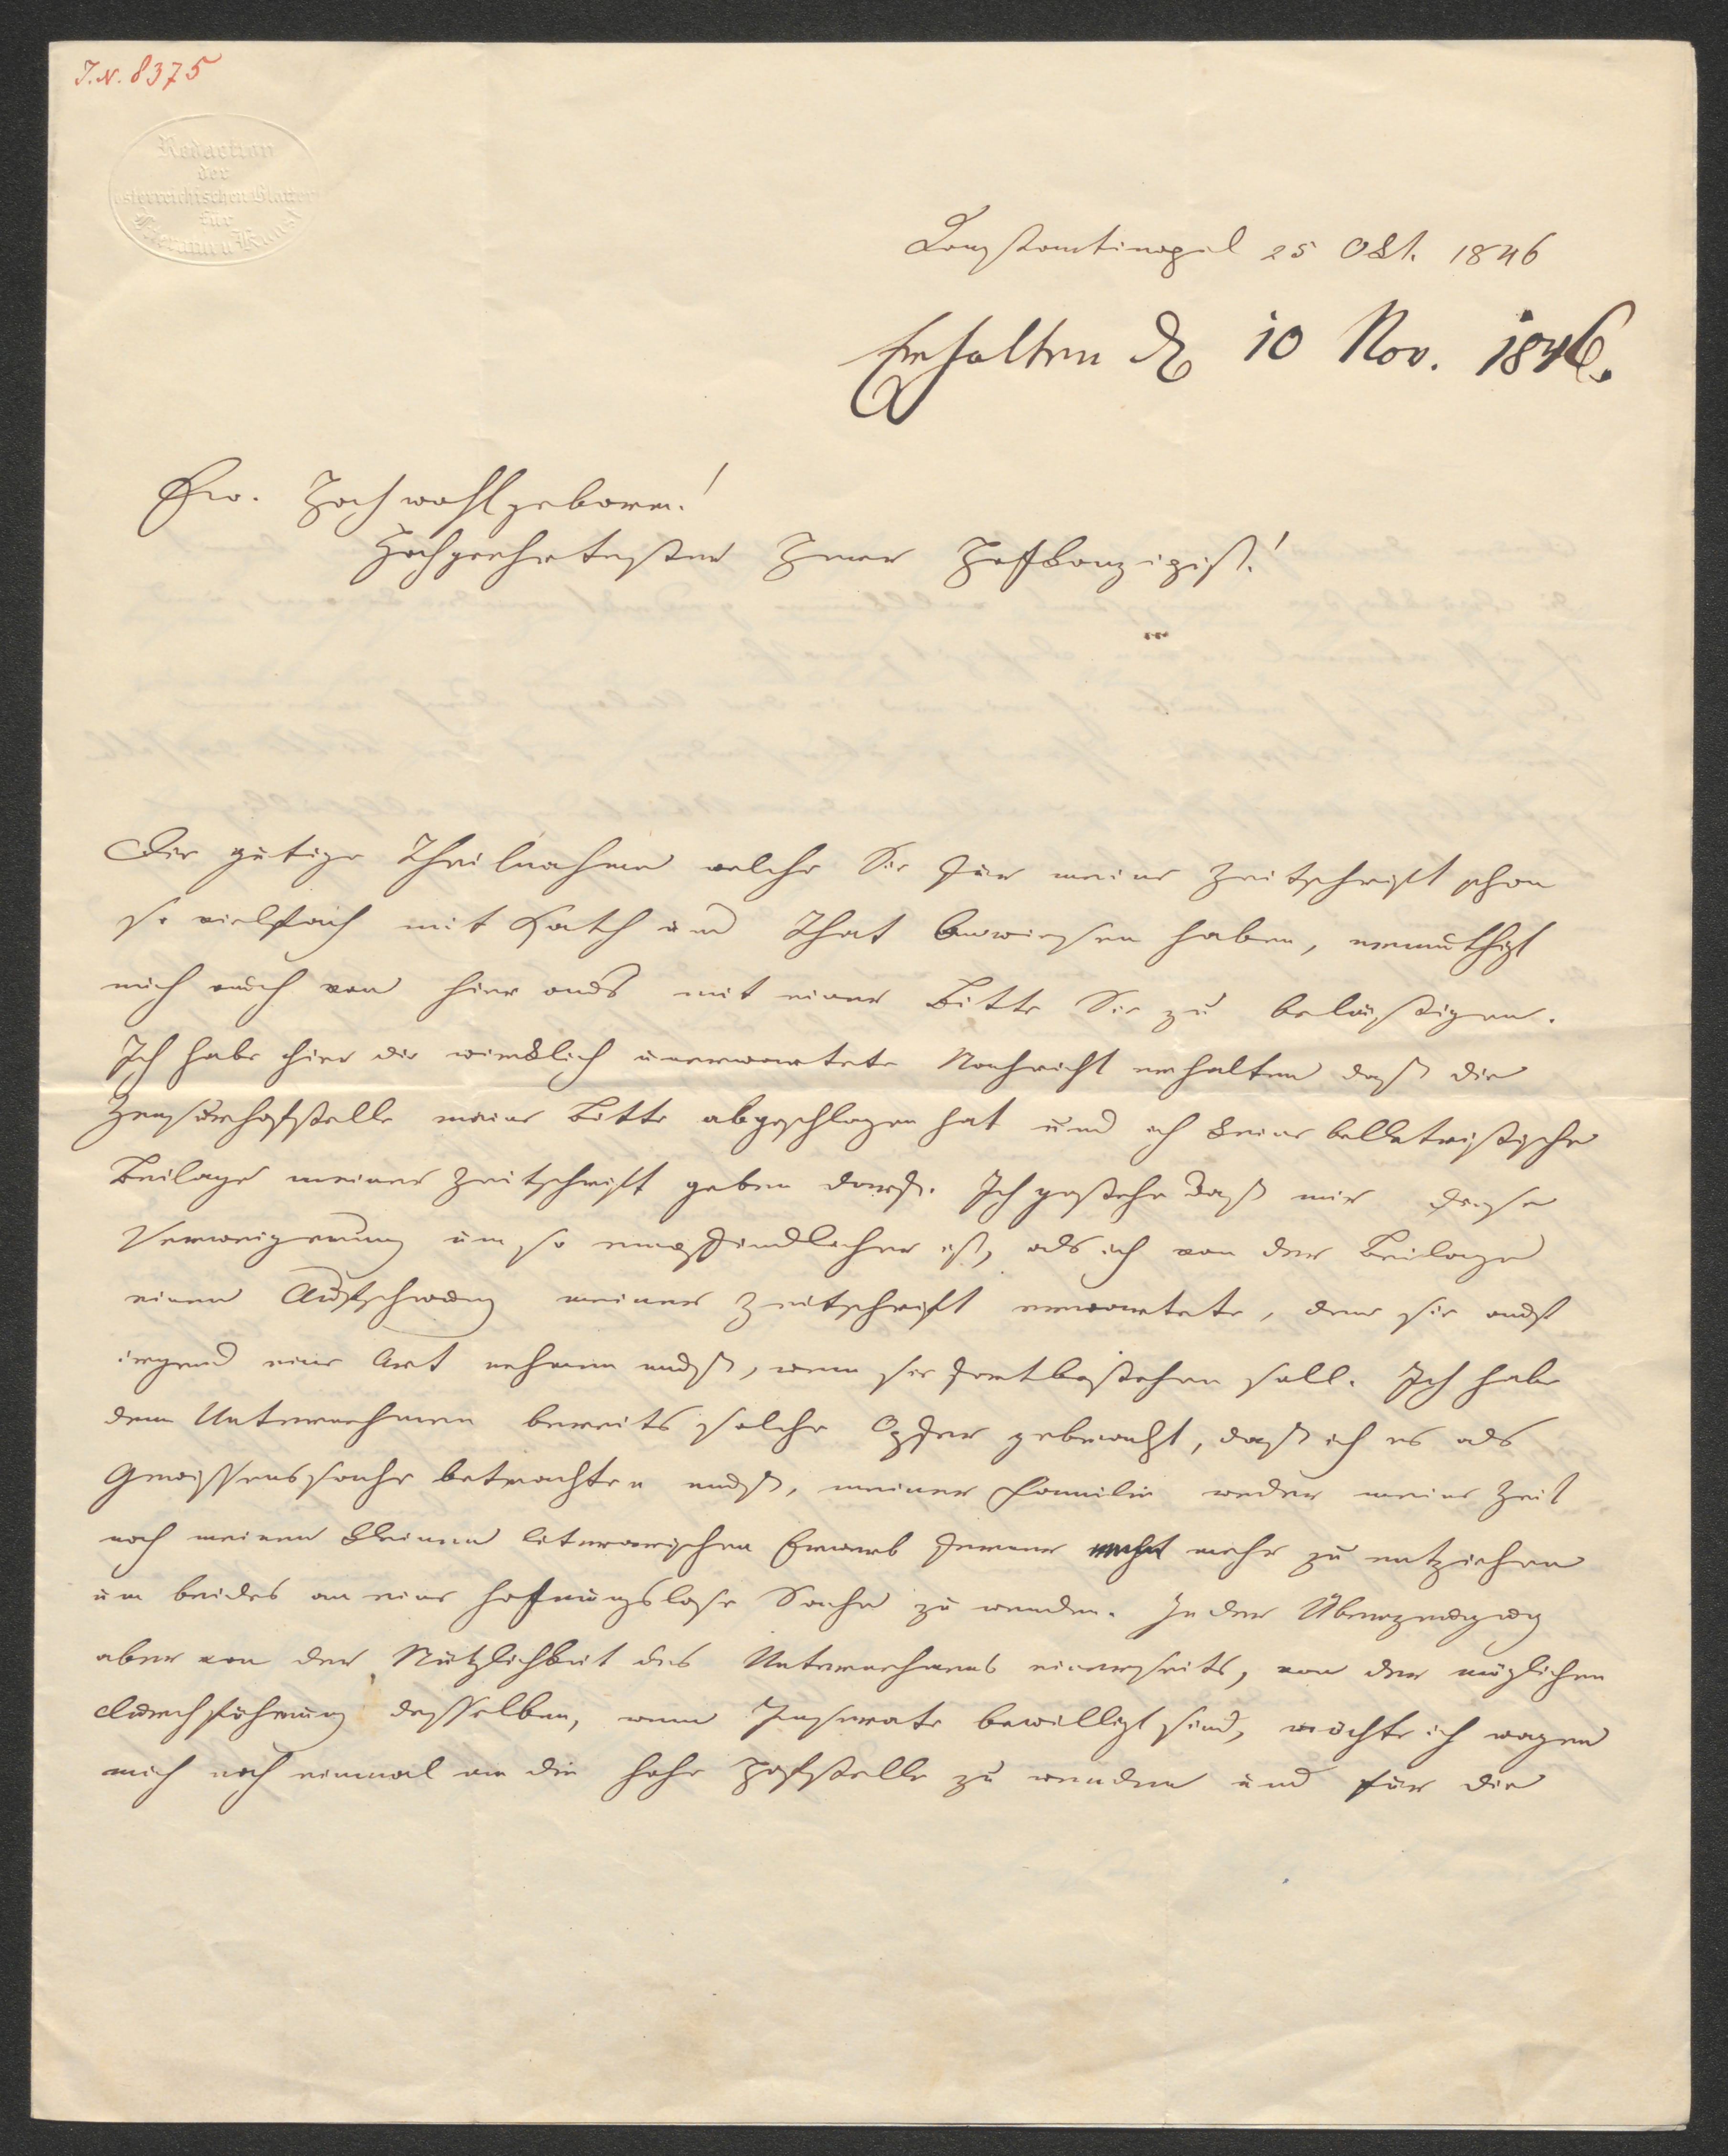 J.N. 8375
Redaction
der
österreichischen Blätter
für
Literatur u. Kunst
Konstantinopel 25 Okt. 1846
Erhalten d. 10 Nov. 1846.
Ew. Hochwohlgeboren!
Hochgeehrtester Herr Hofkonzipist!
Die gütige Theilnahme welche Sie für meine Zeitschrift schon
so vielfach mit Rath und That bewiesen haben, ermuthigt
mich auch von hier aus mit einer Bitte Sie zu belästigen.
Ich habe hier die wirklich unerwartete Nachricht erhalten daß die
Zensurhofstelle meine Bitte abgeschlagen hat und ich keine belletristische
Beilage meiner Zeitschrift geben darf. Ich gestehe daß mir diese
Verweigerung um so empfindlicher ist, als ich von der Beilage
einen Aufschwung meiner Zeitschrift erwartete, den sie auf
irgend eine Art nehmen muß, wenn sie fortbestehen soll. Ich habe
dem Unternehmen bereits solche Opfer gebracht, daß ich es als
Gewissenssache betrachten muß, meiner Familie weder meine Zeit
noch meinen kleinen literarischen Erwerb ferner mehr zu entziehen
um beides an eine hoffnungslose Sache zu wenden. In der Überzeugung
aber von der Nützlichkeit des Unternehmens einerseits, von der möglichen
Durchführung desselben, wenn Inserate bewilligt sind, möchte ich wagen
mich noch einmal an die hohe Hofstelle zu wenden und für die